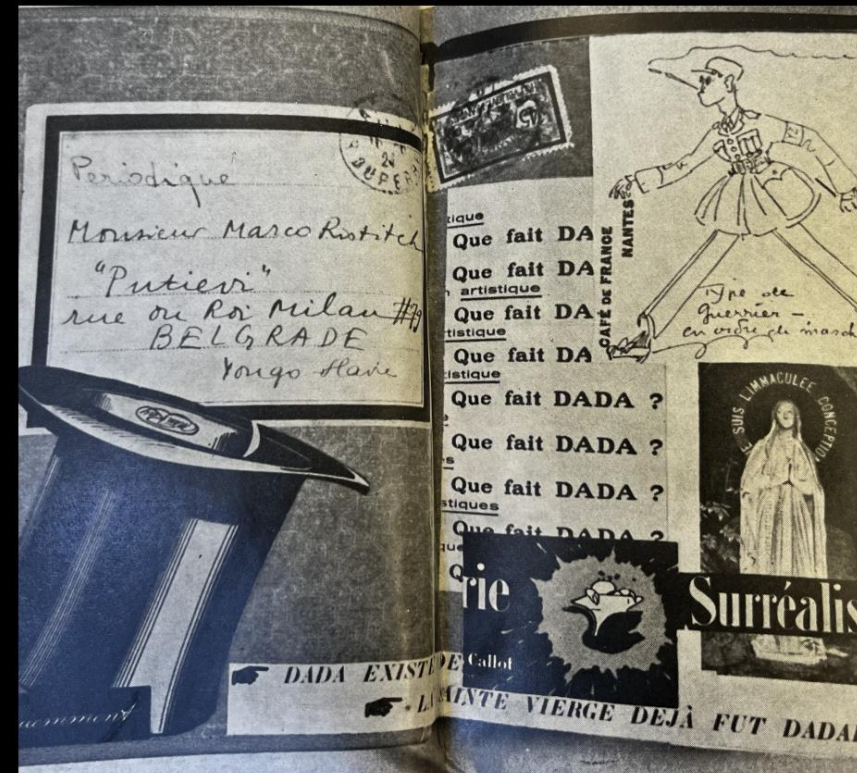 Periodique
Monsieur Marco Ristitch
"Putievi"
rue du Roi Milan #79
BELGRADE
Yougo Slavie
24
DUPE
tique
Que fait DA
Que fait DA
artistique
Que fait DA
tistique
Que fait DA
istique
Que fait DADA ?
Que fait DADA ?
s
Que fait DADA ?
stiques
Que fait DADA ?
que
Q
CAFÉ DE FRANCE
NANTES
Type de
guerrier –
en ordre de march
JE SUIS L'IMMACULEE CONCEPTIO
rie
Surréalis
Callot
DADA EXISTE DE
LA SAINTE VIERGE DEJÀ FUT DADAI